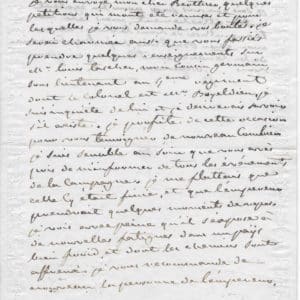 Je vous envoye, mon cher Berthier, quelques
petitions qui m'ont été remises et pour
lesquelles je vous demande vos bontés, je
serai charmée aussi que vous fassiez
prendre quelques renseignements sur
Mr Louis mon Cousin germain
sous lieutenant au régiment
dont le Colonel est Mr je
suis inquiète de lui et je désirerais savoir
s'il existe. je profite de cette occasion
pour vous temoigner de nouveau combien
je suis sensible au soin que vous avés
pris de m'informer de tous les évenements
de la Campagne, je me flattais que
cette Cy était finie, et que l'empereur
prendrait quelques moments de repos
je vois avec peine qu'il s'expose à
de nouvelles fatigues dans un pays
bien froid, et dont les chemins sont
affreux. je vous recommande de
la personne de l'empereur,